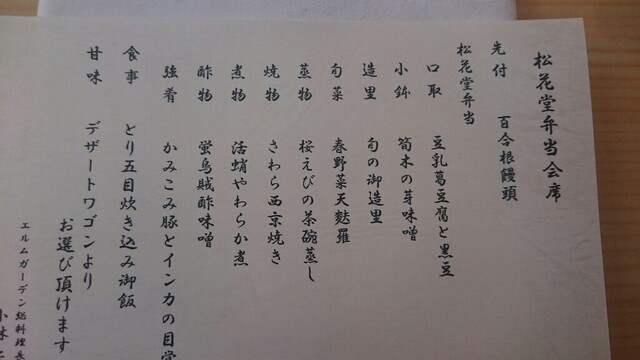 松花堂弁当会席
先付 百合根饅頭
松花堂弁当
口取 豆乳葛豆腐と黒豆
小鉢 筍木の芽味噌
造里 旬の御造里
旬菜 春野菜天麩羅
蒸物 桜えびの茶碗蒸し
焼物 さわら西京焼き
煮物 活蛸やわらか煮
酢物 蛍烏賊酢味噌
強肴 かみこみ豚とインカの目覚
食事 とり五目炊き込み御飯
甘味 デザートワゴンより
お選び頂けます
エルムガーデン総料理長
小林